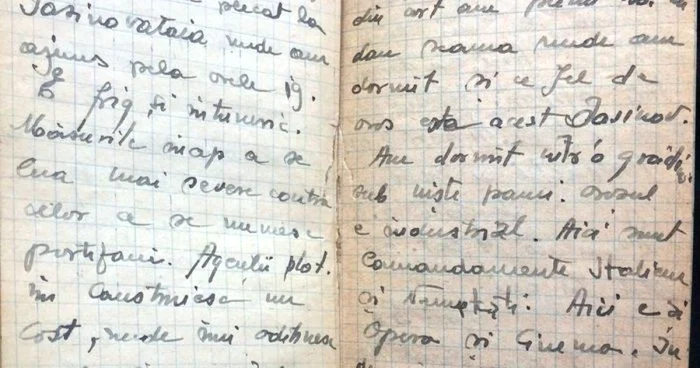 plecat la
Iasinovataia unde am
ajuns pela orele 19.
E frig și intuneric.
Măsurile incep a se
lua mai severe contra
celor ce se numesc
partizani. Agentii plot.
îmi construiesc un
Cost, unde îmi odihnesc
din cort am
dau seama unde am
dormit si ce fel de
oras este acest Iasinov.
Am dormit intr'o grădi
sub niste pomi. orasul
e industrial. Aici sunt
Comandamente Italiene
și Nemțești. Aici e și
Opera si Cinema. In